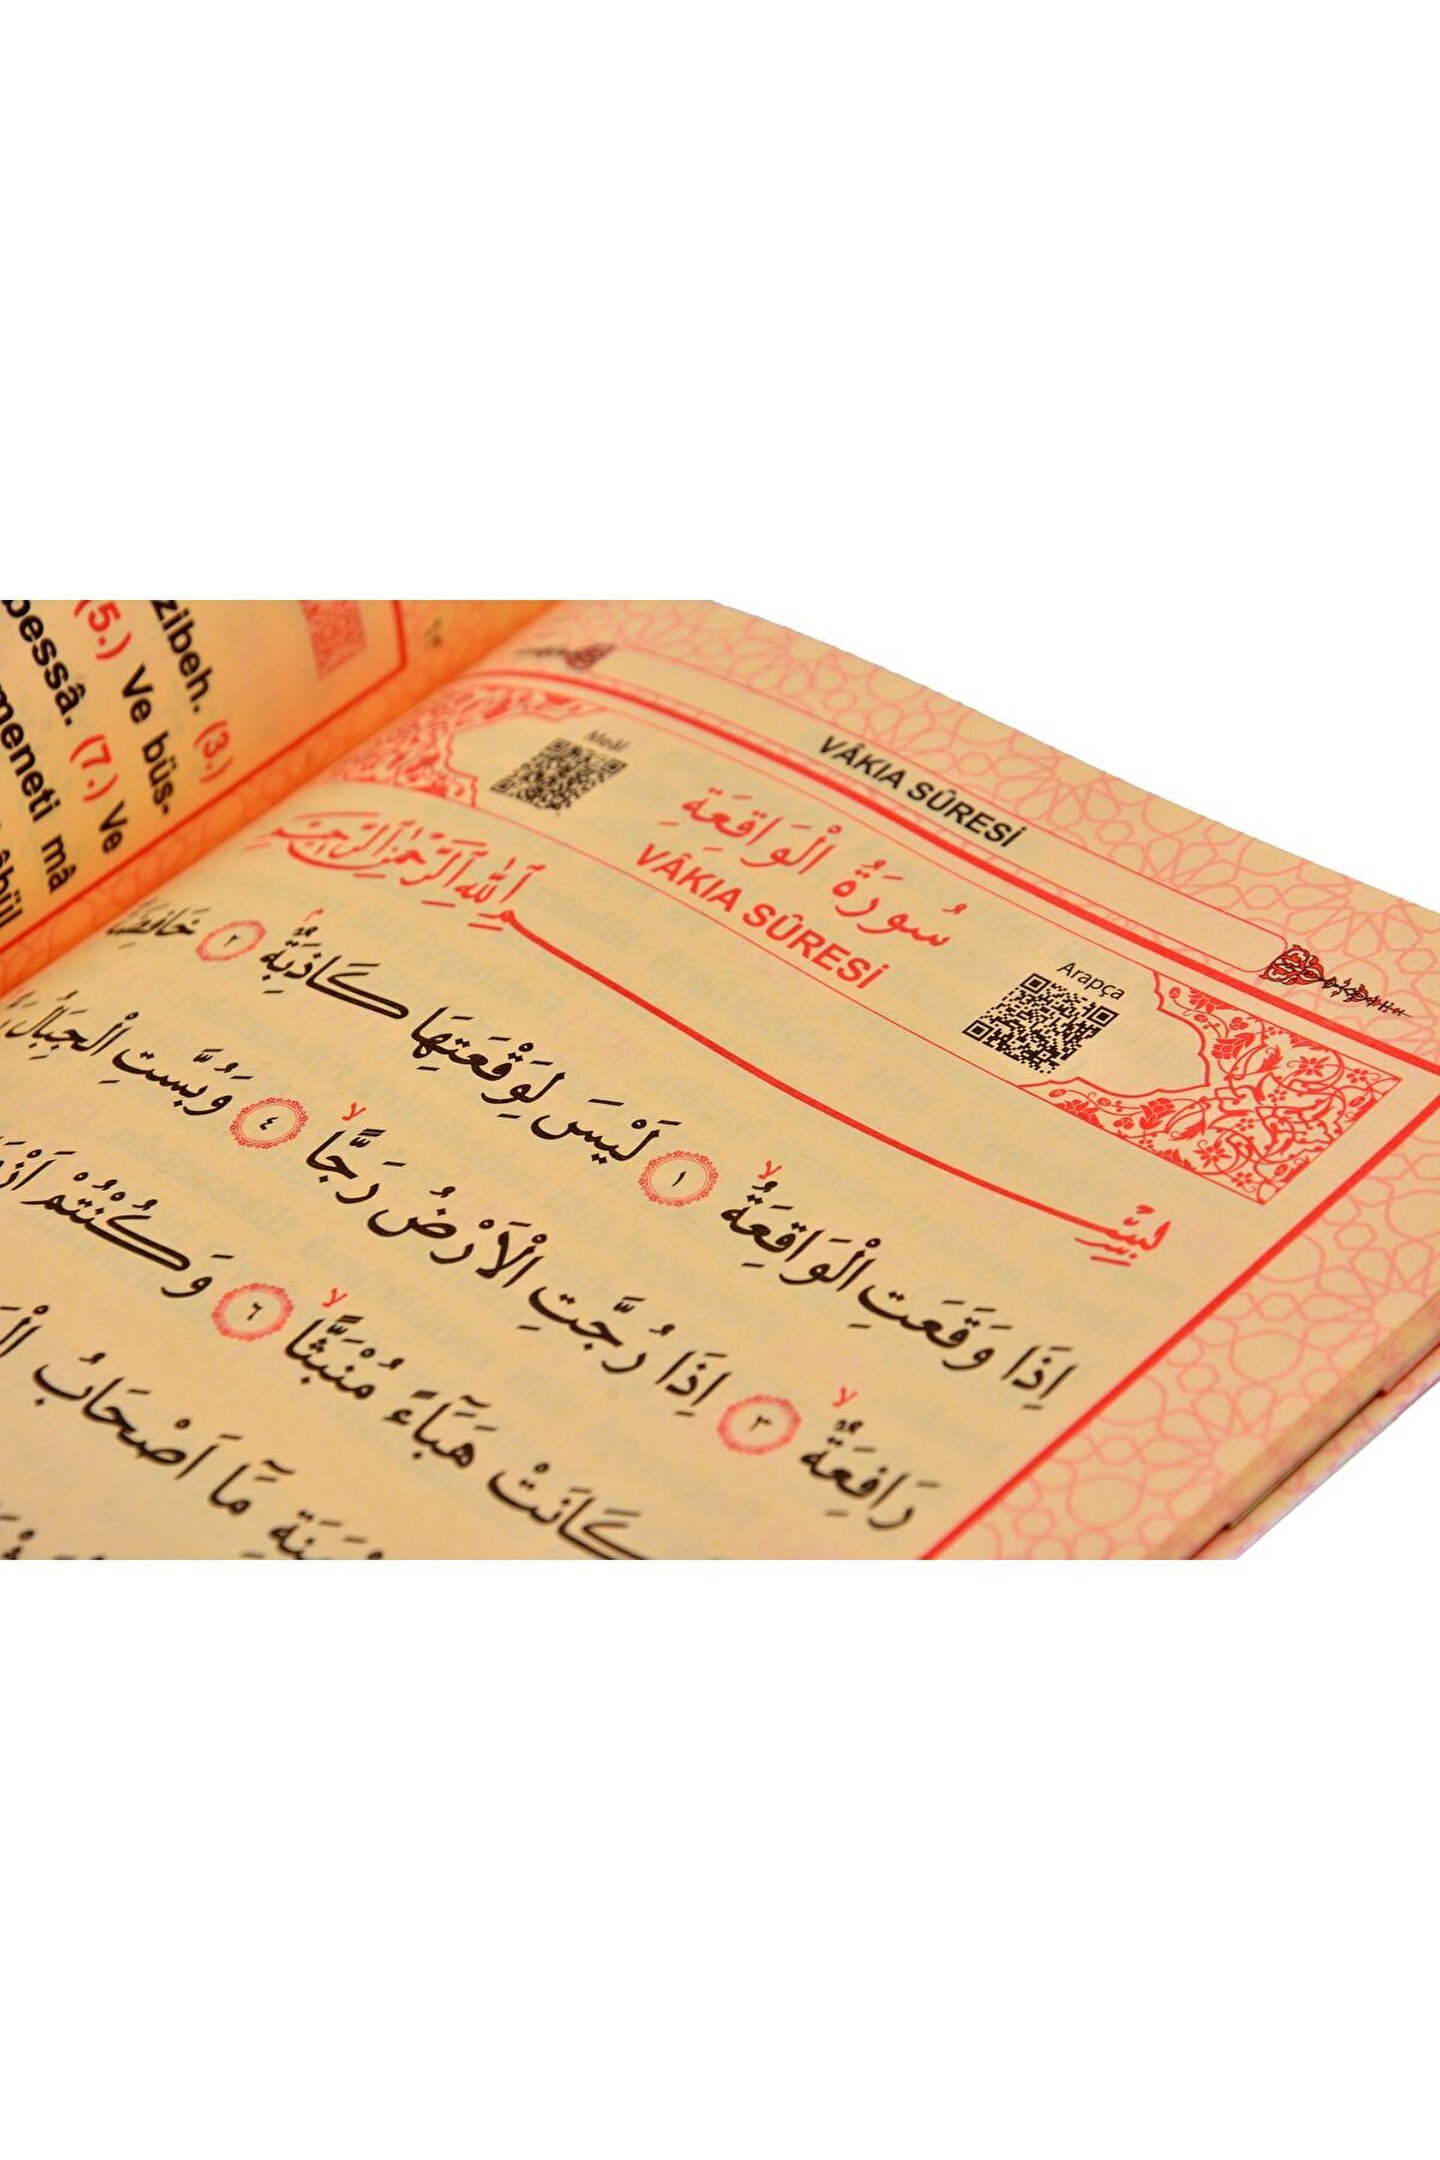 zibeh. (3.)
(5.) Ve büs-
bessâ. (7.) Ve
meneti mâ
VÂKIA SÛRESİ
Meâl
سُورَةُ الْوَاقِعَةِ
VÂKIA SÛRESİ
Arapça
بِسْمِ اللّٰهِ الرَّحْمٰنِ الرَّحِيمِ
اِذَا وَقَعَتِ الْوَاقِعَةُۙ ١ لَيْسَ لِوَقْعَتِهَا كَاذِبَةٌۢ ٢
رَافِعَةٌۙ ٣ اِذَا رُجَّتِ الْاَرْضُ رَجًّاۙ ٤ وَبُسَّتِ الْجِبَالُ
كَانَتْ هَبَٓاءً مُنْبَثًّاۙ ٦ وَكُنْتُمْ
مَٓا اَصْحَابُ